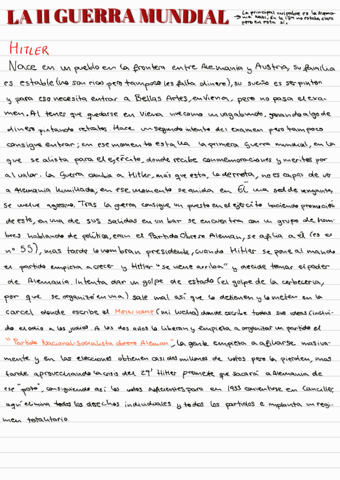 LA II GUERRA MUNDIAL
La principal culpable es la Alema-
nia Nazi. En la 1ªGM no estaba claro
pero en esta sí.
HITLER
Nace en un pueblo en la frontera entre Alemania y Austria, su familia
es estable (no son ricos pero tampoco les falta dinero), su sueño es ser pintor
y para eso necesita entrar a Bellas Artes, en Viena, pero no pasa el exa-
men. Al tener que quedarse en Viena vive como un vagabundo, ganando algo de
dinero pintando retratos. Hace un segundo intento del examen pero tampoco
consigue entrar; en ese momento estalla la primera Guerra mundial, en la
que se alista para el ejército, donde recibe conmemoraciones y meritos por
al valor. La Guerra cambia a Hitler, mas que esta, la derrota, no es capaz de ver
a Alemania humillada, en ese momento se anida en ÉL una sed de venganza,
se vuelve agresivo. Tras la guerra consigue un puesto en el ejército haciendo promoción
de este, en una de sus salidas en un bar se encuentra con un grupo de hom-
bres hablando de política, eran el Partido Obrero Aleman, se afilia a él (es el
nº 55), mas tarde lo nombran presidente, cuando Hitler se pone al mando
el partido empieza a crecer y Hitler "se viene arriba" y decide tomar el poder
de Alemania. Intenta dar un golpe de estado (el golpe de la cervecería,
por que se organizó en una) sale mal así que lo detienen y lo meten en la
carcel donde escribe el Mein Kampf (mi lucha) donde escribe todas sus ideas (inclui-
do el odio a los judios). A los dos años lo liberan y empieza a organizar un partido el
"Partido Nacional-Socialista obrero Aleman", la gente empieza a afiliarse masiva-
mente y en las elecciones obtienen casi dos millones de votos pero la pierden, mas
tarde aprovechando la crisis del 29' Hitler promete que sacará a Alemania de
ese "pozo", consiguiendo así los votos suficientes para en 1933 convertirse en Canciller,
aquí elimina todos los derechos individuales y todos los partidos e implanta un regi-
men totalitario.